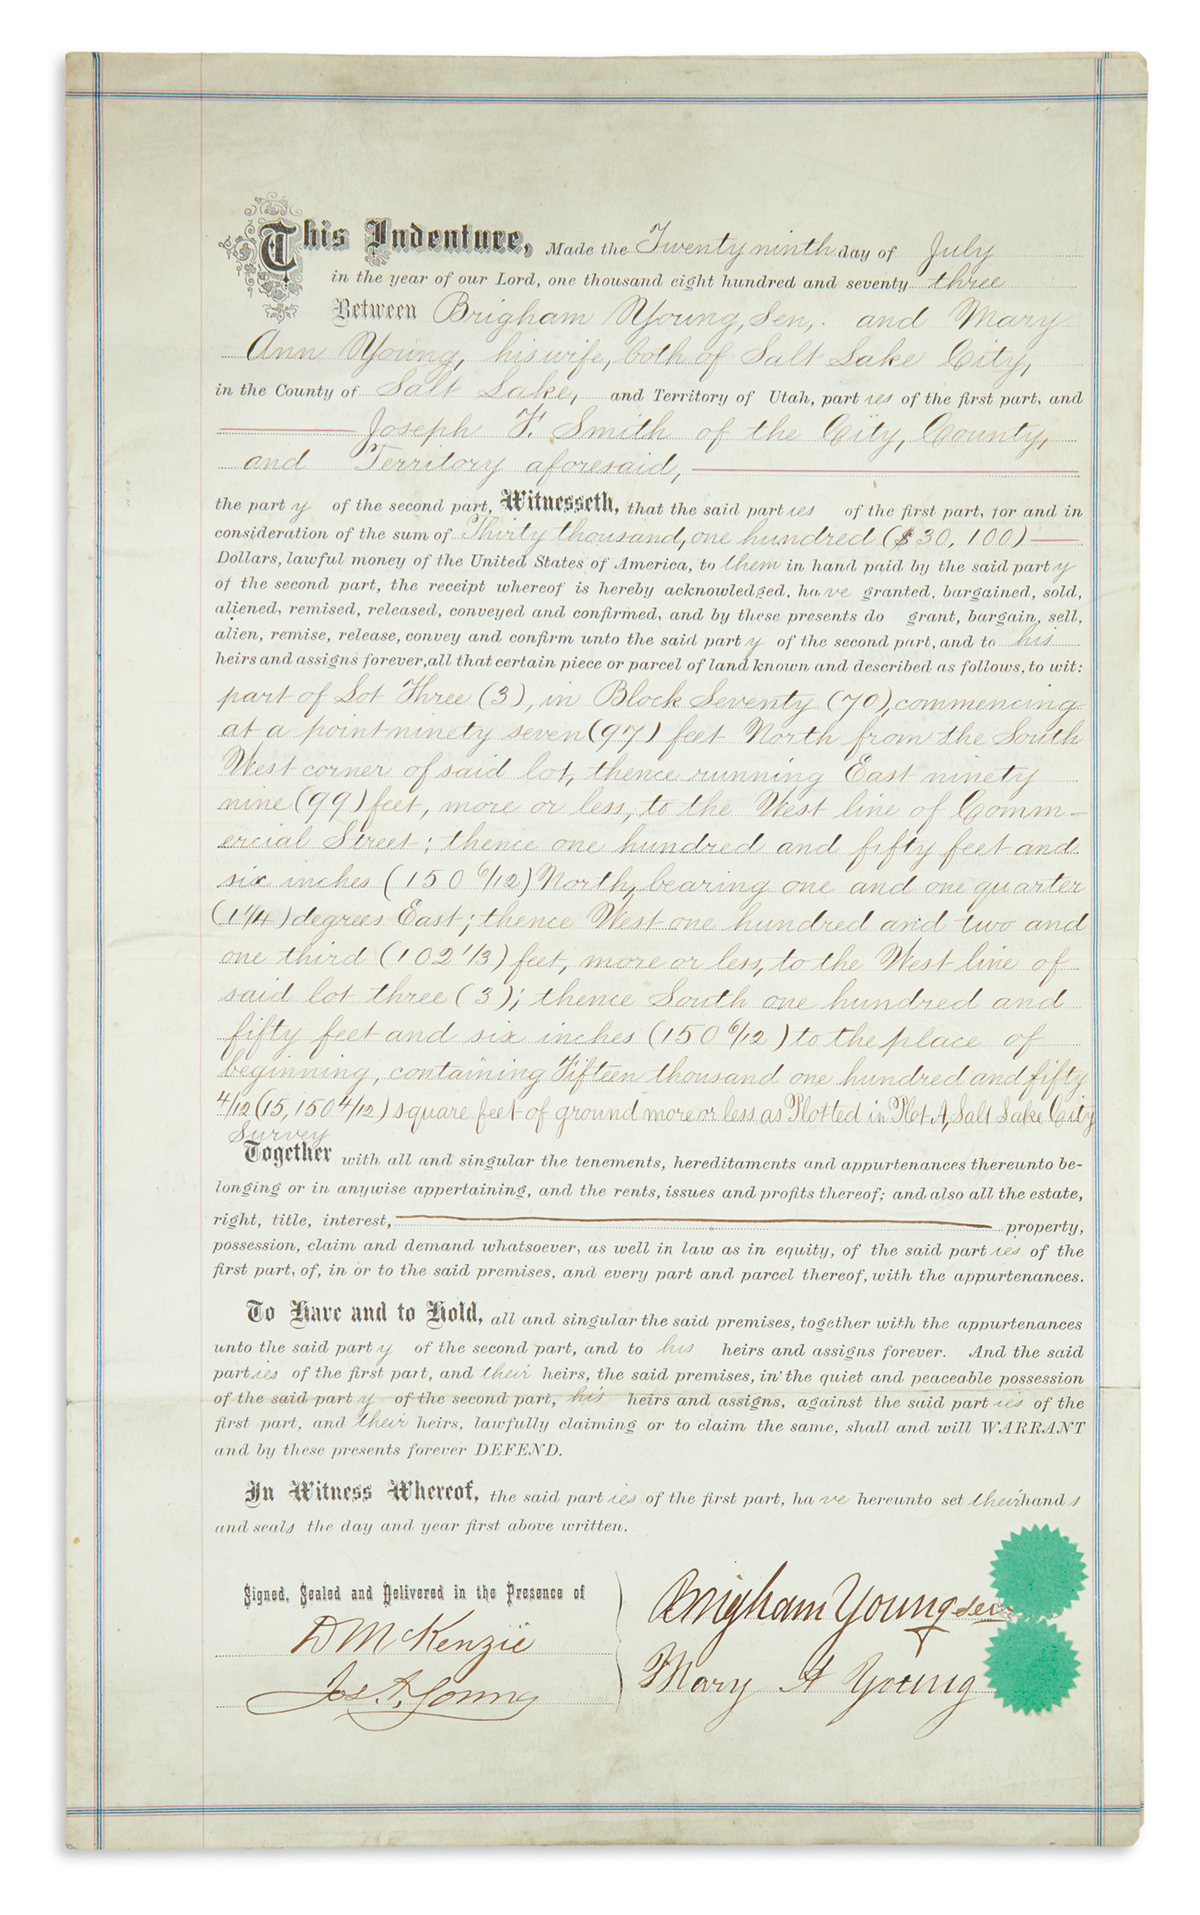 This Indenture, Made the Twenty ninth day of July
in the year of our Lord, one thousand eight hundred and seventy three
Between Brigham Young, Sen,. and Mary
Ann Young, his wife, both of Salt Lake City,
in the County of Salt Lake, and Territory of Utah, parties of the first part, and
Joseph F. Smith of the City, County,
and Territory aforesaid,
the party of the second part, Witnesseth, that the said parties of the first part, for and in
consideration of the sum of Thirty thousand, one hundred ($30,100)
Dollars, lawful money of the United States of America, to them in hand paid by the said party
of the second part, the receipt whereof is hereby acknowledged, have granted, bargained, sold,
aliened, remised, released, conveyed and confirmed, and by these presents do grant, bargain, sell,
alien, remise, release, convey and confirm unto the said party of the second part, and to his
heirs and assigns forever, all that certain piece or parcel of land known and described as follows, to wit:
part of Lot Three (3), in Block Seventy (70), commencing
at a point ninety seven (97) feet North from the South
West corner of said lot, thence running East ninety
nine (99) feet, more or less, to the West line of Comm-
ercial Street; thence one hundred and fifty feet and
six inches (150 6/12) North, bearing one and one quarter
(1 1/4) degrees East; thence West one hundred and two and
one third (102 1/3) feet, more or less, to the West line of
said lot three (3); thence South one hundred and
fifty feet and six inches (150 6/12) to the place of
beginning, containing Fifteen thousand one hundred and fifty
4/12 (15,150 4/12) square feet of ground more or less as Plotted in Plot A, Salt Lake City
Survey
Together with all and singular the tenements, hereditaments and appurtenances thereunto be-
longing or in anywise appertaining, and the rents, issues and profits thereof; and also all the estate,
right, title, interest, property,
possession, claim and demand whatsoever, as well in law as in equity, of the said parties of the
first part, of, in or to the said premises, and every part and parcel thereof, with the appurtenances.
To Have and to Hold, all and singular the said premises, together with the appurtenances
unto the said party of the second part, and to his heirs and assigns forever. And the said
parties of the first part, and their heirs, the said premises, in the quiet and peaceable possession
of the said party of the second part, his heirs and assigns, against the said parties of the
first part, and their heirs, lawfully claiming or to claim the same, shall and will WARRANT
and by these presents forever DEFEND.
In Witness Whereof, the said parties of the first part, have hereunto set their hands
and seals the day and year first above written.
Signed, Sealed and Delivered in the Presence of
D McKenzie
Jos. A. Young
Brigham Young sen
Mary A Young